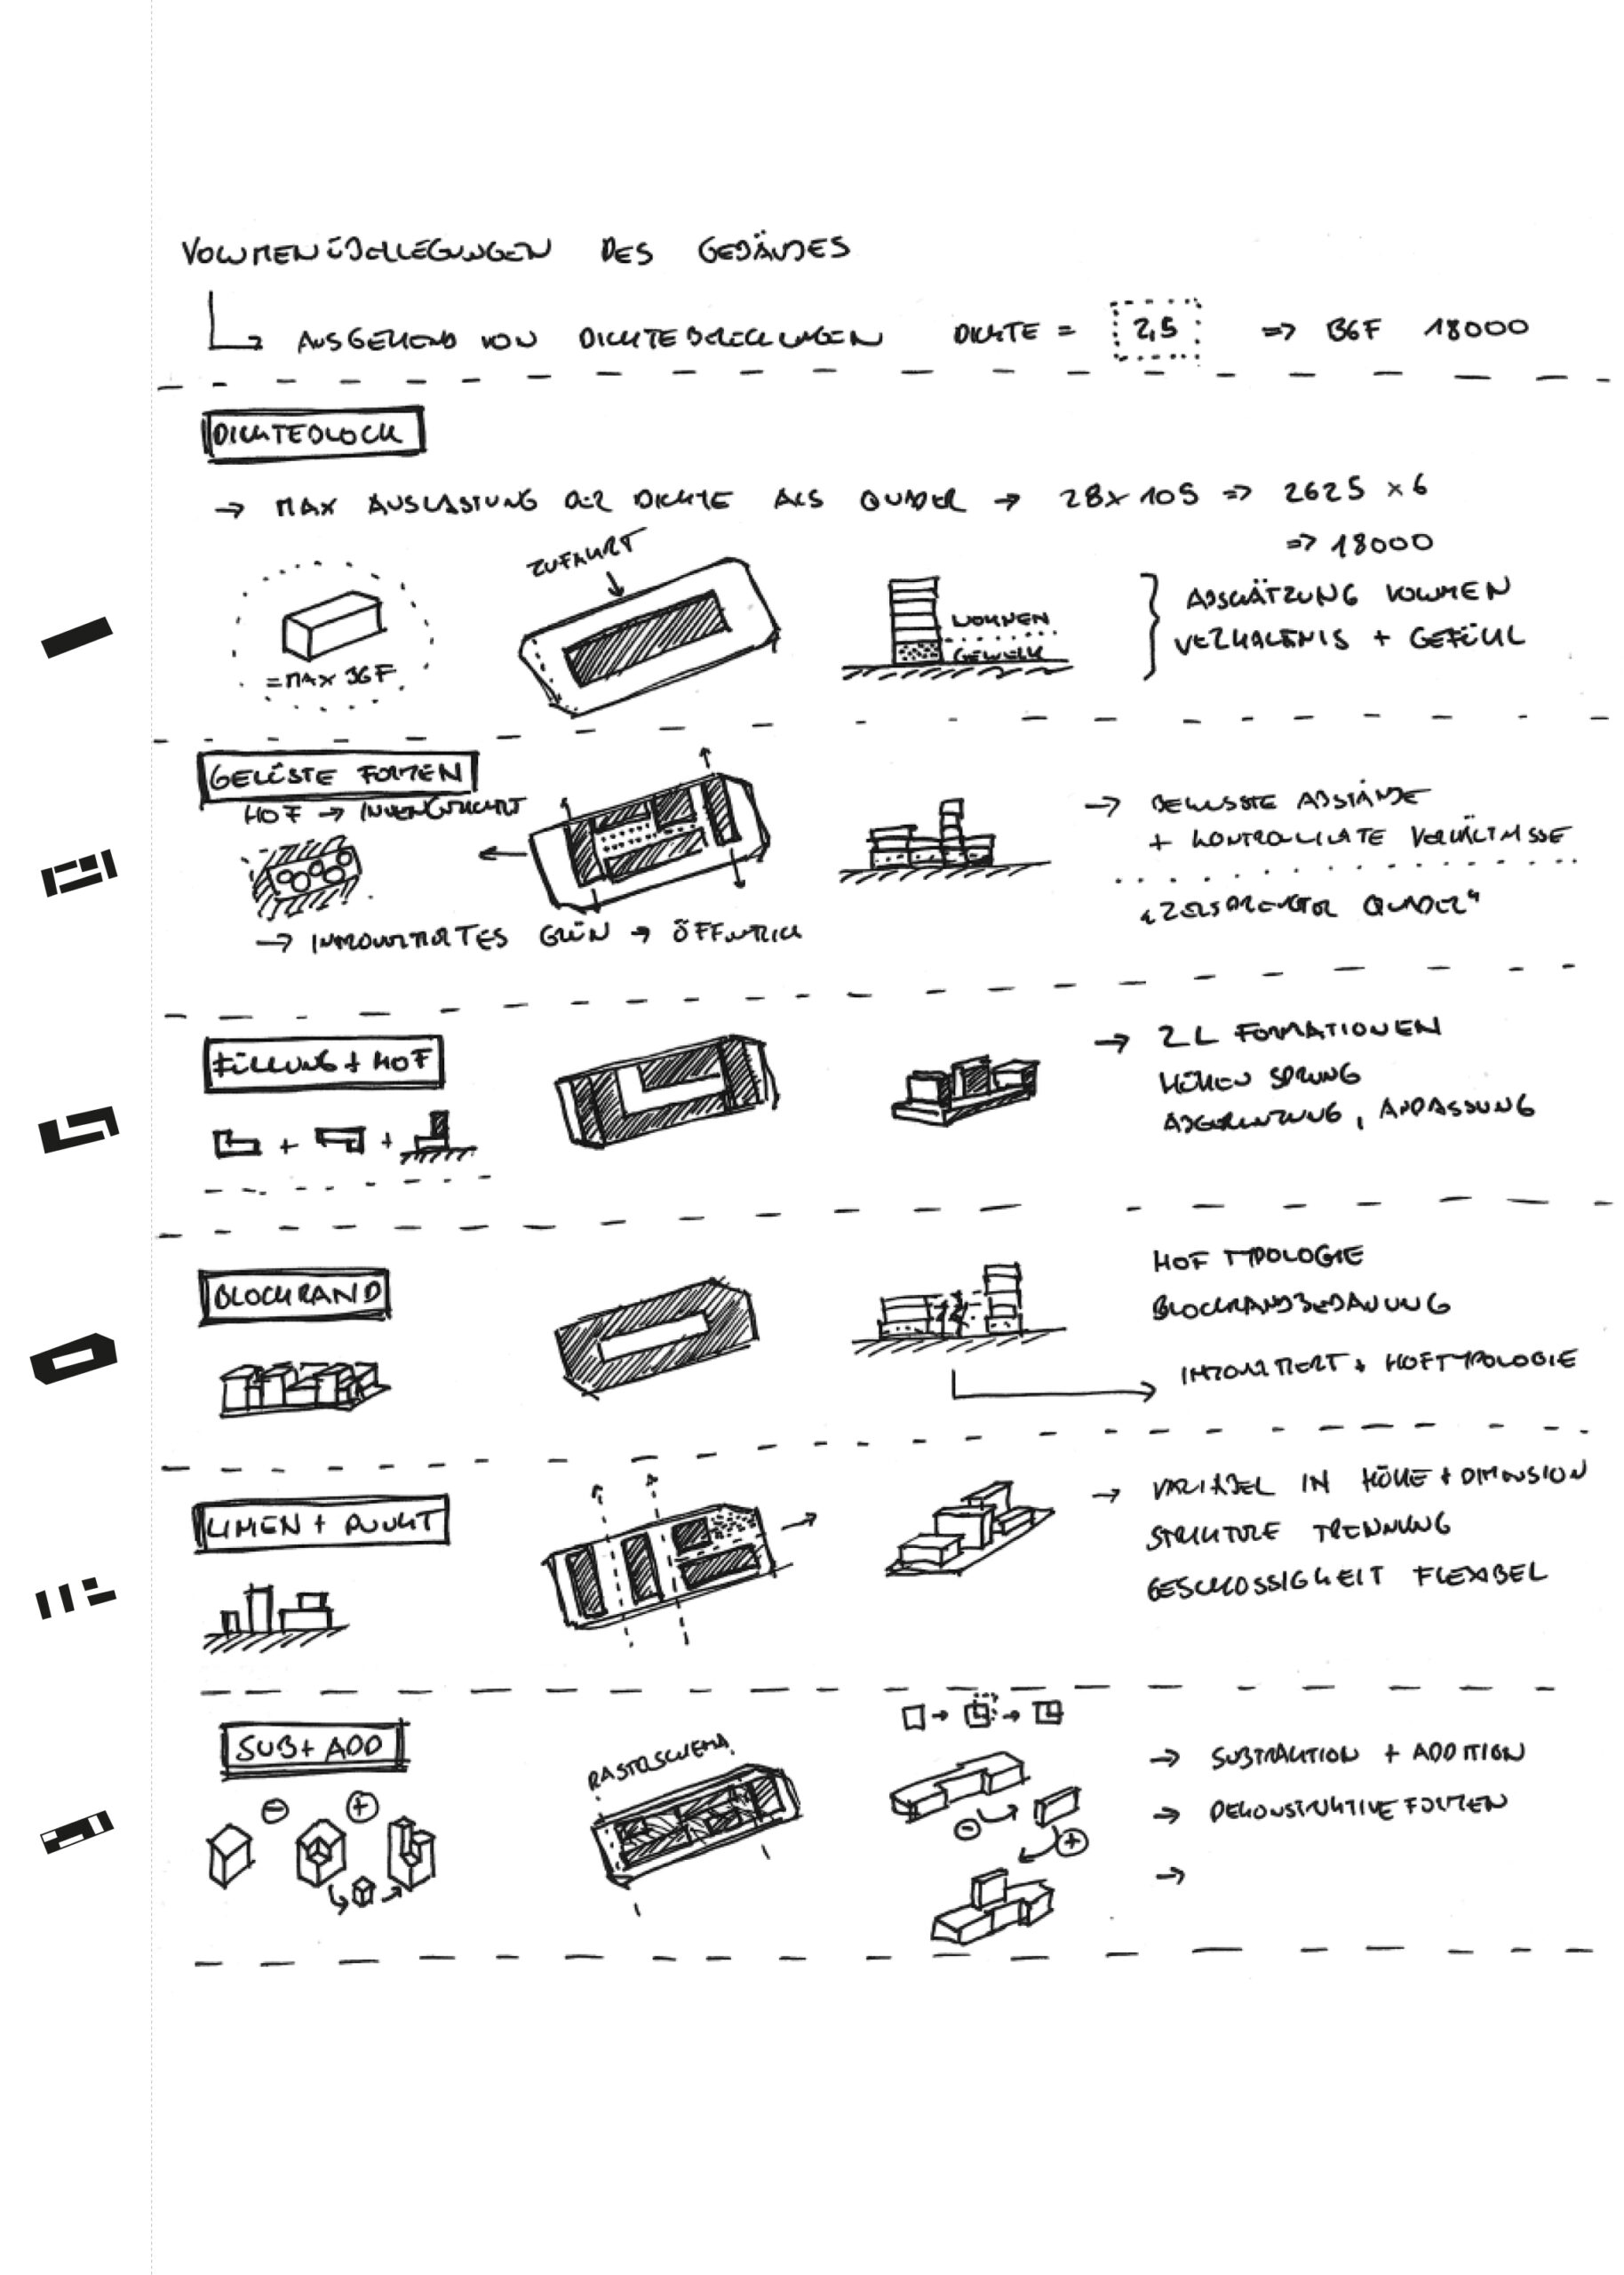 VOLUMENÜBERLEGUNGEN DES GEBÄUDES
AUSGEHEND VON DICHTEBERECHNUNGEN DICHTE = 2,5 => BGF 18000
DICHTEBLOCK
→ MAX AUSLASTUNG DER DICHTE ALS QUADER → 28 x 105 => 2625 x 6
=> 18000
ZUFAHRT
= MAX BGF
WOHNEN
GEWERK
ABSCHÄTZUNG VOLUMEN
VERHÄLTNIS + GEFÜHL
GELÖSTE FORMEN
HOF → INNENGERICHTET
→ INTROVERTIERTES GRÜN → ÖFFENTLICH
→ BEWUSSTE ABSTÄNDE
+ KONTROLLIERTE VERHÄLTNISSE
„ZERSPRENGTER QUADER"
FÜLLUNG + HOF
+ +
→ 2 L FORMATIONEN
HÖHEN SPRUNG
ABGRENZUNG, ANPASSUNG
BLOCKRAND
HOF TYPOLOGIE
BLOCKRANDBEBAUUNG
INTROVERTIERT + HOFTYPOLOGIE
LINIEN + PUNKT
→ VARIABEL IN HÖHE + DIMENSION
STRUKTUR TRENNUNG
GESCHOSSIGKEIT FLEXIBEL
SUB + ADD
- +
RASTERSCHEMA
- +
→ SUBTRAKTION + ADDITION
→ DEKONSTRUKTIVE FORMEN
→